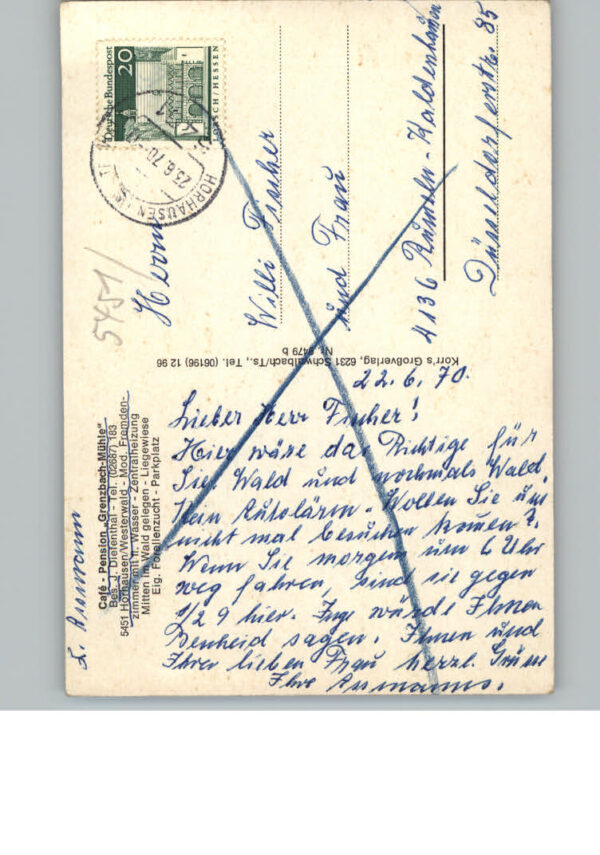 Café - Pension „Grenzbach-Mühle"
Bes. J. Diefenthal - Tel. (02687) 183
5451 Horhausen/Westerwald - Mod. Fremden-
zimmer mit fl. Wasser - Zentralheizung
Mitten im Wald gelegen - Liegewiese
Eig. Forellenzucht - Parkplatz
L. Assmann
22.6.70.
Lieber Herr Fischer!
Hier wäre das Richtige für
Sie. Wald und nochmals Wald.
Kein Autolärm. Wollen Sie uns
nicht mal besuchen kommen?
Wenn Sie morgens um 6 Uhr
weg fahren, sind sie gegen
1/2 9 hier. Inge würde Ihnen
Bescheid sagen. Ihnen und
Ihrer lieben Frau herzl. Grüsse
Ihre Assmanns.
Korr's Großverlag, 6231 Schwalbach/Ts., Tel. (06196) 12 96
Nr. 9479 b
5451/
Herrn
Willi Fischer
und Frau
4136 Rumeln-Kaldenhausen
Düsseldorferstr. 85
Deutsche Bundespost
20
LORSCH/HESSEN
HORHAUSEN
23.6.70